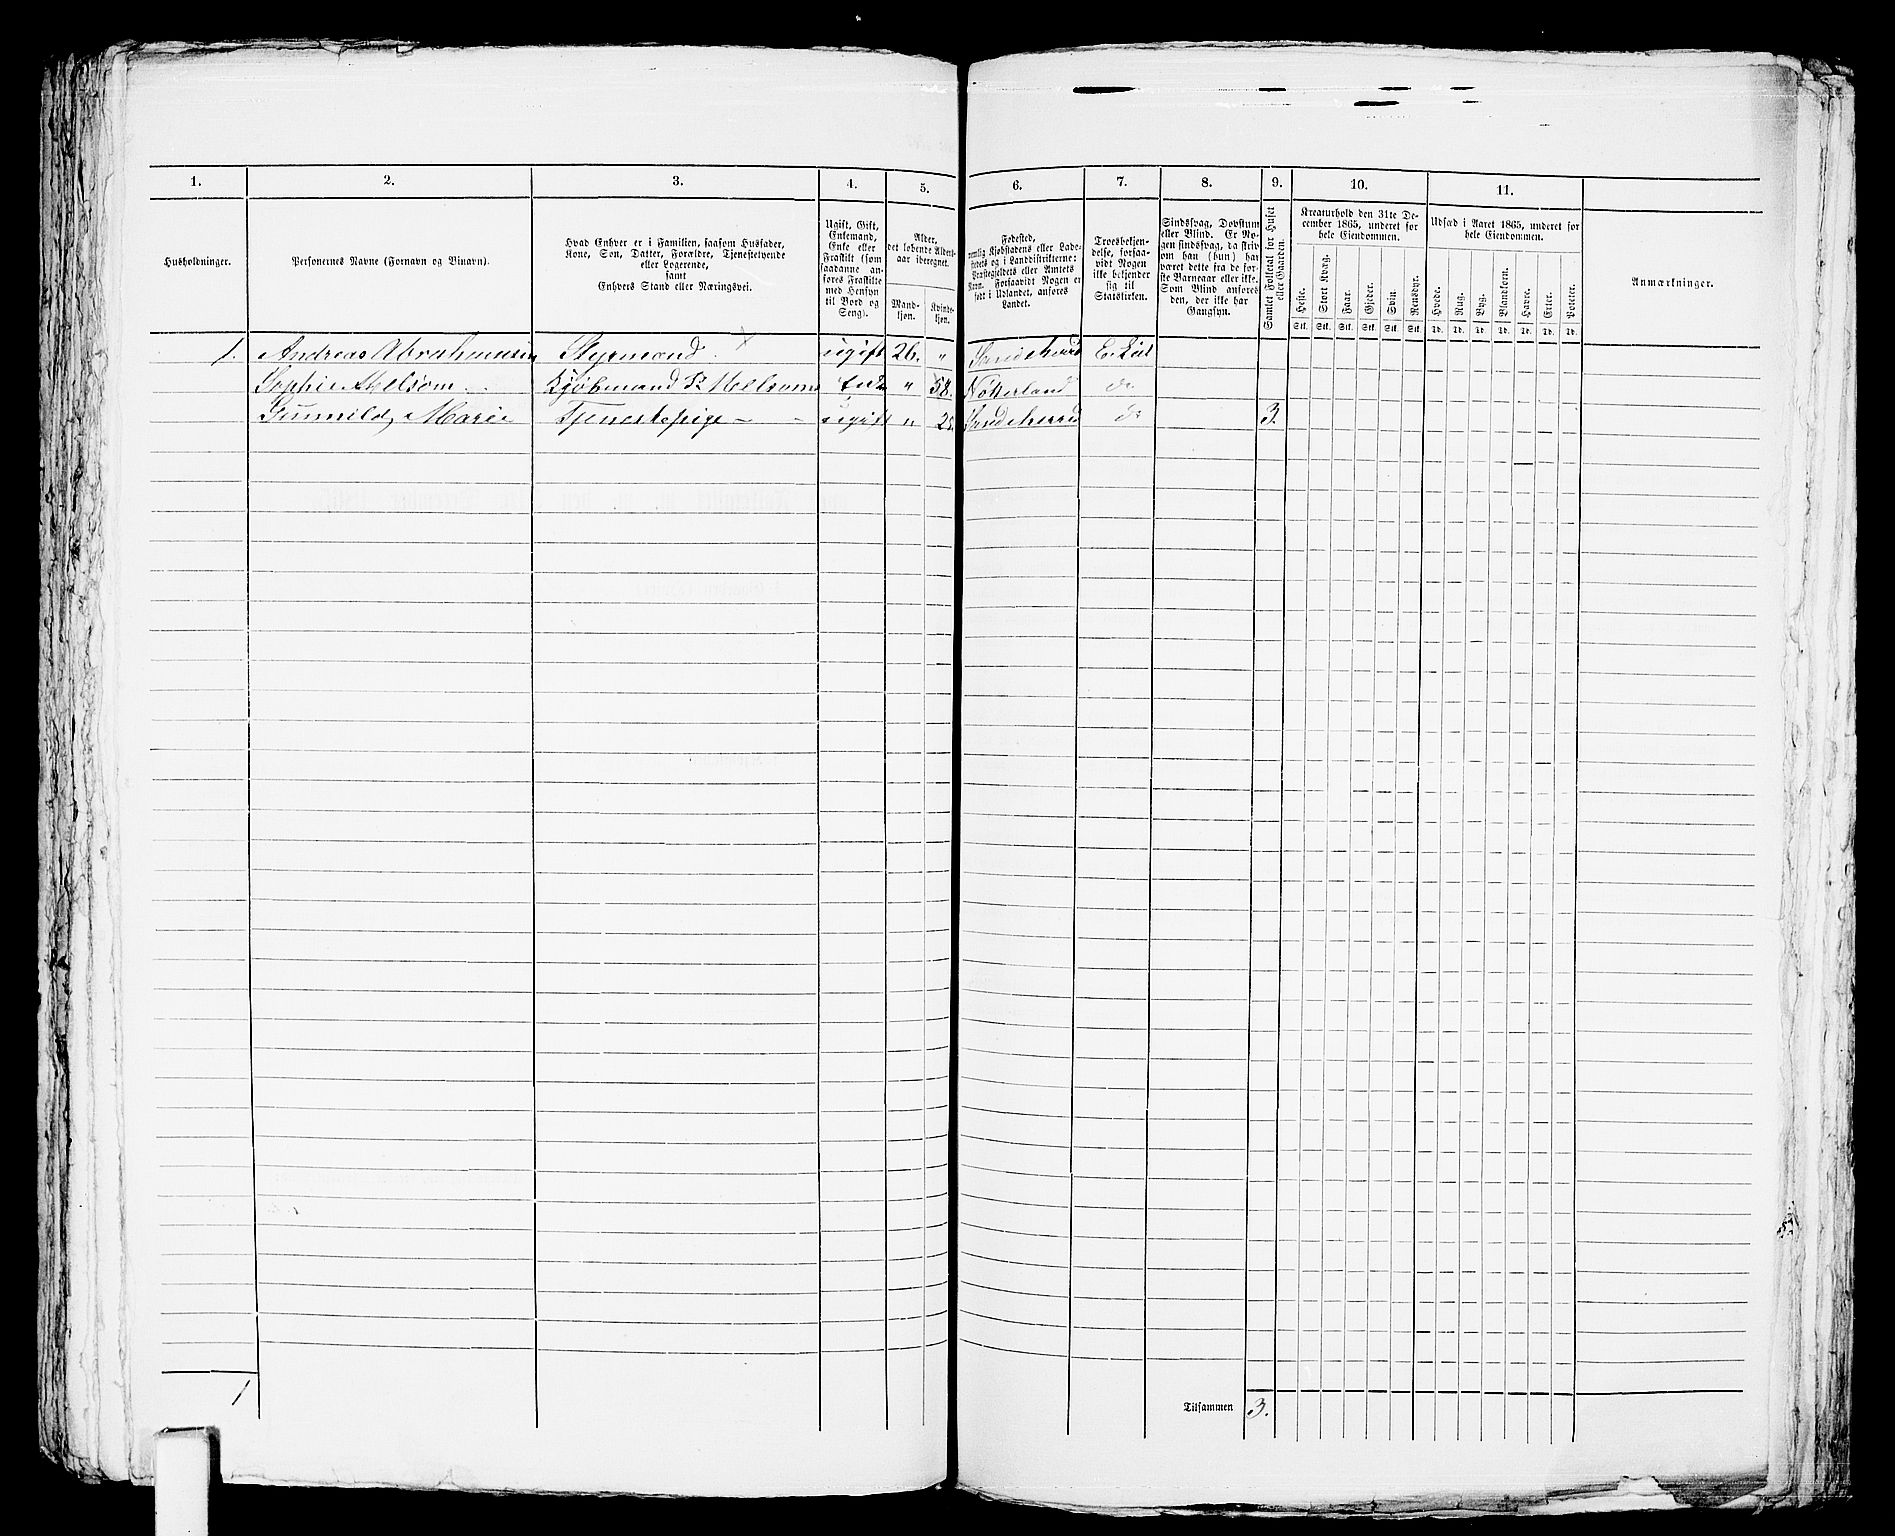 1. 2. 3. 4. 5. 6. 7. 8. 9. 10. 11.
Husholdninger.
Personernes Navne (Fornavn og Binavn).
Hvad Enhver er i Familien, saasom Husfader,
Kone, Søn, Datter, Forældre, Tjenestetyende
eller Logerende,
samt
Enhvers Stand eller Næringsvei.
Ugift, Gift,
Enkemand,
Enke eller
Fraskilt (som
saadanne an-
føres Fraskilte
med Hensyn
til Bord og
Seng).
Alder,
det løbende Alders-
aar iberegnet.
Mand-
kjøn.
Kvinde-
kjøn.
Fødested,
nemlig Kjøbstadens eller Lade-
stedets og i Landdistrikterne:
Præstegjeldets eller Amtets
Navn. Forsaavidt Nogen er
født i Udlandet, anføres
Landet.
Troesbekjen-
delse, forsaa-
vidt Nogen
ikke bekjender
sig til
Statskirken.
Sindssvag, Døvstum
eller Blind. Er No-
gen sindssvag, da skriv
om han (hun) har
været dette fra de før-
ste Barneaar eller ikke.
Som Blind anføres
den, der ikke har
Gangsyn.
Samlet Folketal for Huset
eller Gaarden.
Kreaturhold den 31te De-
cember 1865, underet for
hele Eiendommen.
Heste. Stort Kvæg. Faar. Gjeder. Svin. Rensdyr.
Stk. Stk. Stk. Stk. Stk. Stk.
Udsæd i Aaret 1865, underet for
hele Eiendommen.
Hvede. Rug. Byg. Blandkorn. Havre. Erter. Poteter.
Td. Td. Td. Td. Td. Td. Td.
Anmærkninger.
1. Andreas Abrahamsen Styrmand ugift 26. " Sandeherred
Sophie Melsom Kjøbmand Melsoms Enke " 58. Nøtterland do
Gunnild Marie Tjenestepige ugift " 23. Sandeherred do 3.
1
Tilsammen 3.